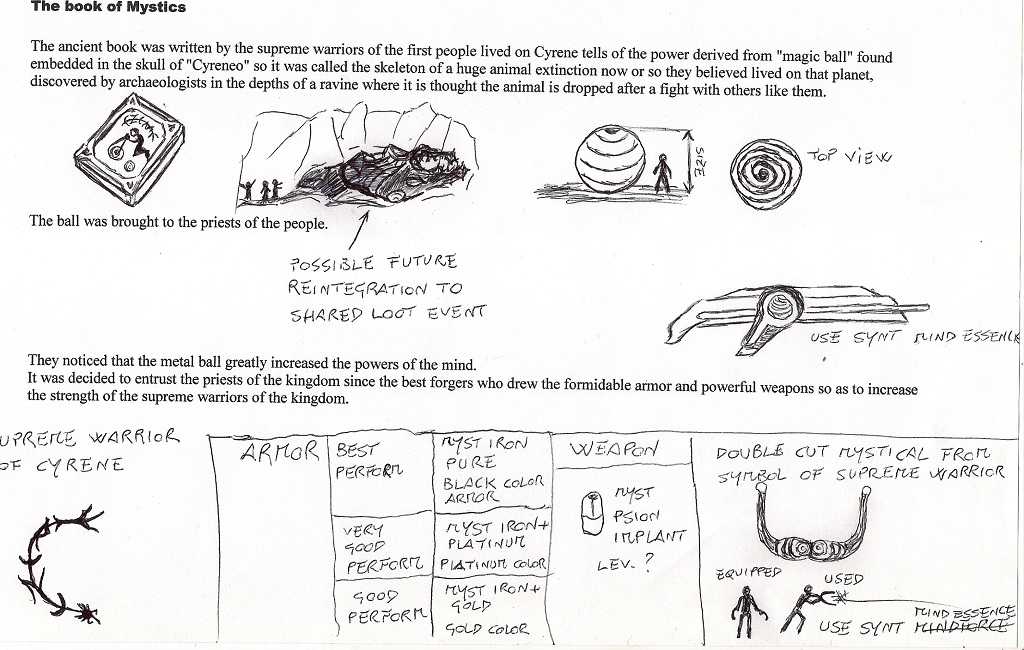 The book of Mystics
The ancient book was written by the supreme warriors of the first people lived on Cyrene tells of the power derived from "magic ball" found
embedded in the skull of "Cyreneo" so it was called the skeleton of a huge animal extinction now or so they believed lived on that planet,
discovered by archaeologists in the depths of a ravine where it is thought the animal is dropped after a fight with others like them.
SIZE
TOP VIEW
The ball was brought to the priests of the people.
POSSIBLE FUTURE
REINTEGRATION TO
SHARED LOOT EVENT
USE SYNT MIND ESSENCE
They noticed that the metal ball greatly increased the powers of the mind.
It was decided to entrust the priests of the kingdom since the best forgers who drew the formidable armor and powerful weapons so as to increase
the strength of the supreme warriors of the kingdom.
UPREME WARRIOR
OF CYRENE
ARMOR
BEST
PERFORM
MYST IRON
PURE
BLACK COLOR
ARMOR
VERY
GOOD
PERFORM
MYST IRON+
PLATINUM
PLATINUM COLOR
GOOD
PERFORM
MYST IRON+
GOLD
GOLD COLOR
WEAPON
MYST
PSION
IMPLANT
LEV. ?
DOUBLE CUT MYSTICAL FROM
SYMBOL OF SUPREME WARRIOR
EQUIPPED
USED
MIND ESSENCE
USE SYNT MINDFORCE